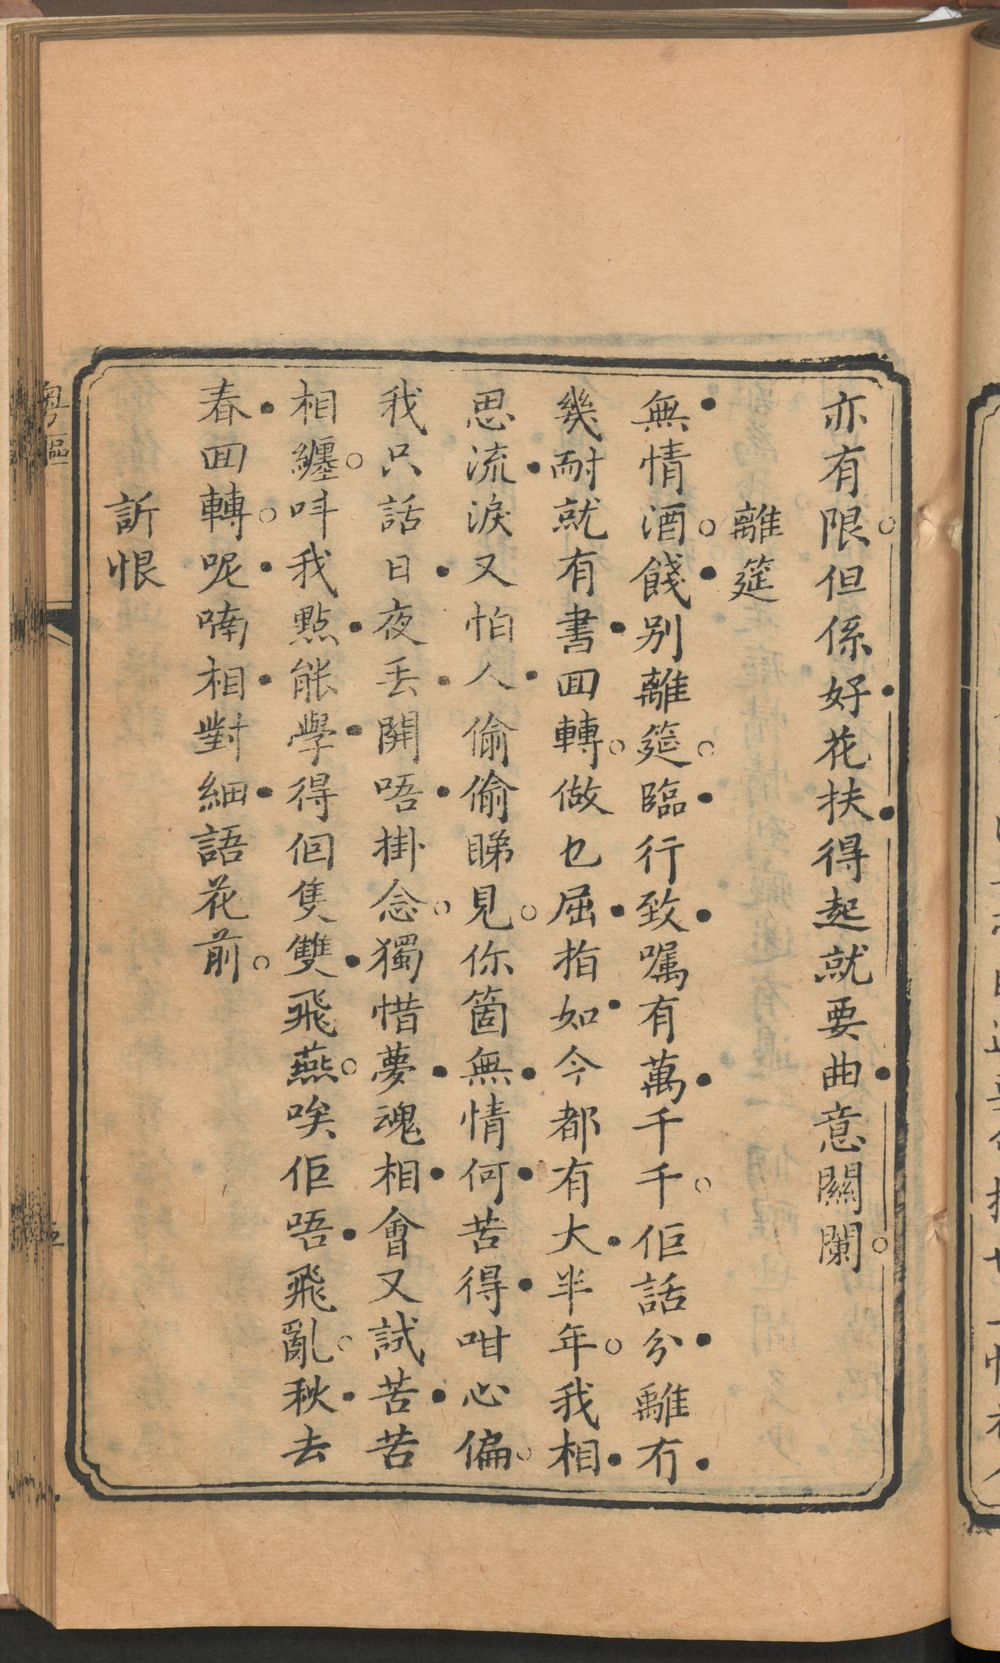 亦有限○但係好花扶得起就要曲意關闌○
離筵
無情酒○餞别離筵○臨行致嘱有萬千千○佢話分離冇
幾耐就有書囬轉○做乜屈指如今都有大半年○我相
思流淚又怕人偷偷睇見○你箇無情何苦得咁心偏○
我只話日夜丢開唔掛念○獨惜夢魂相會又試苦苦
相纒○呌我點能學得個隻雙飛燕○唉佢唔飛亂○秋去
春囬轉○呢喃相對細語花前○
訴恨
粤謳
五